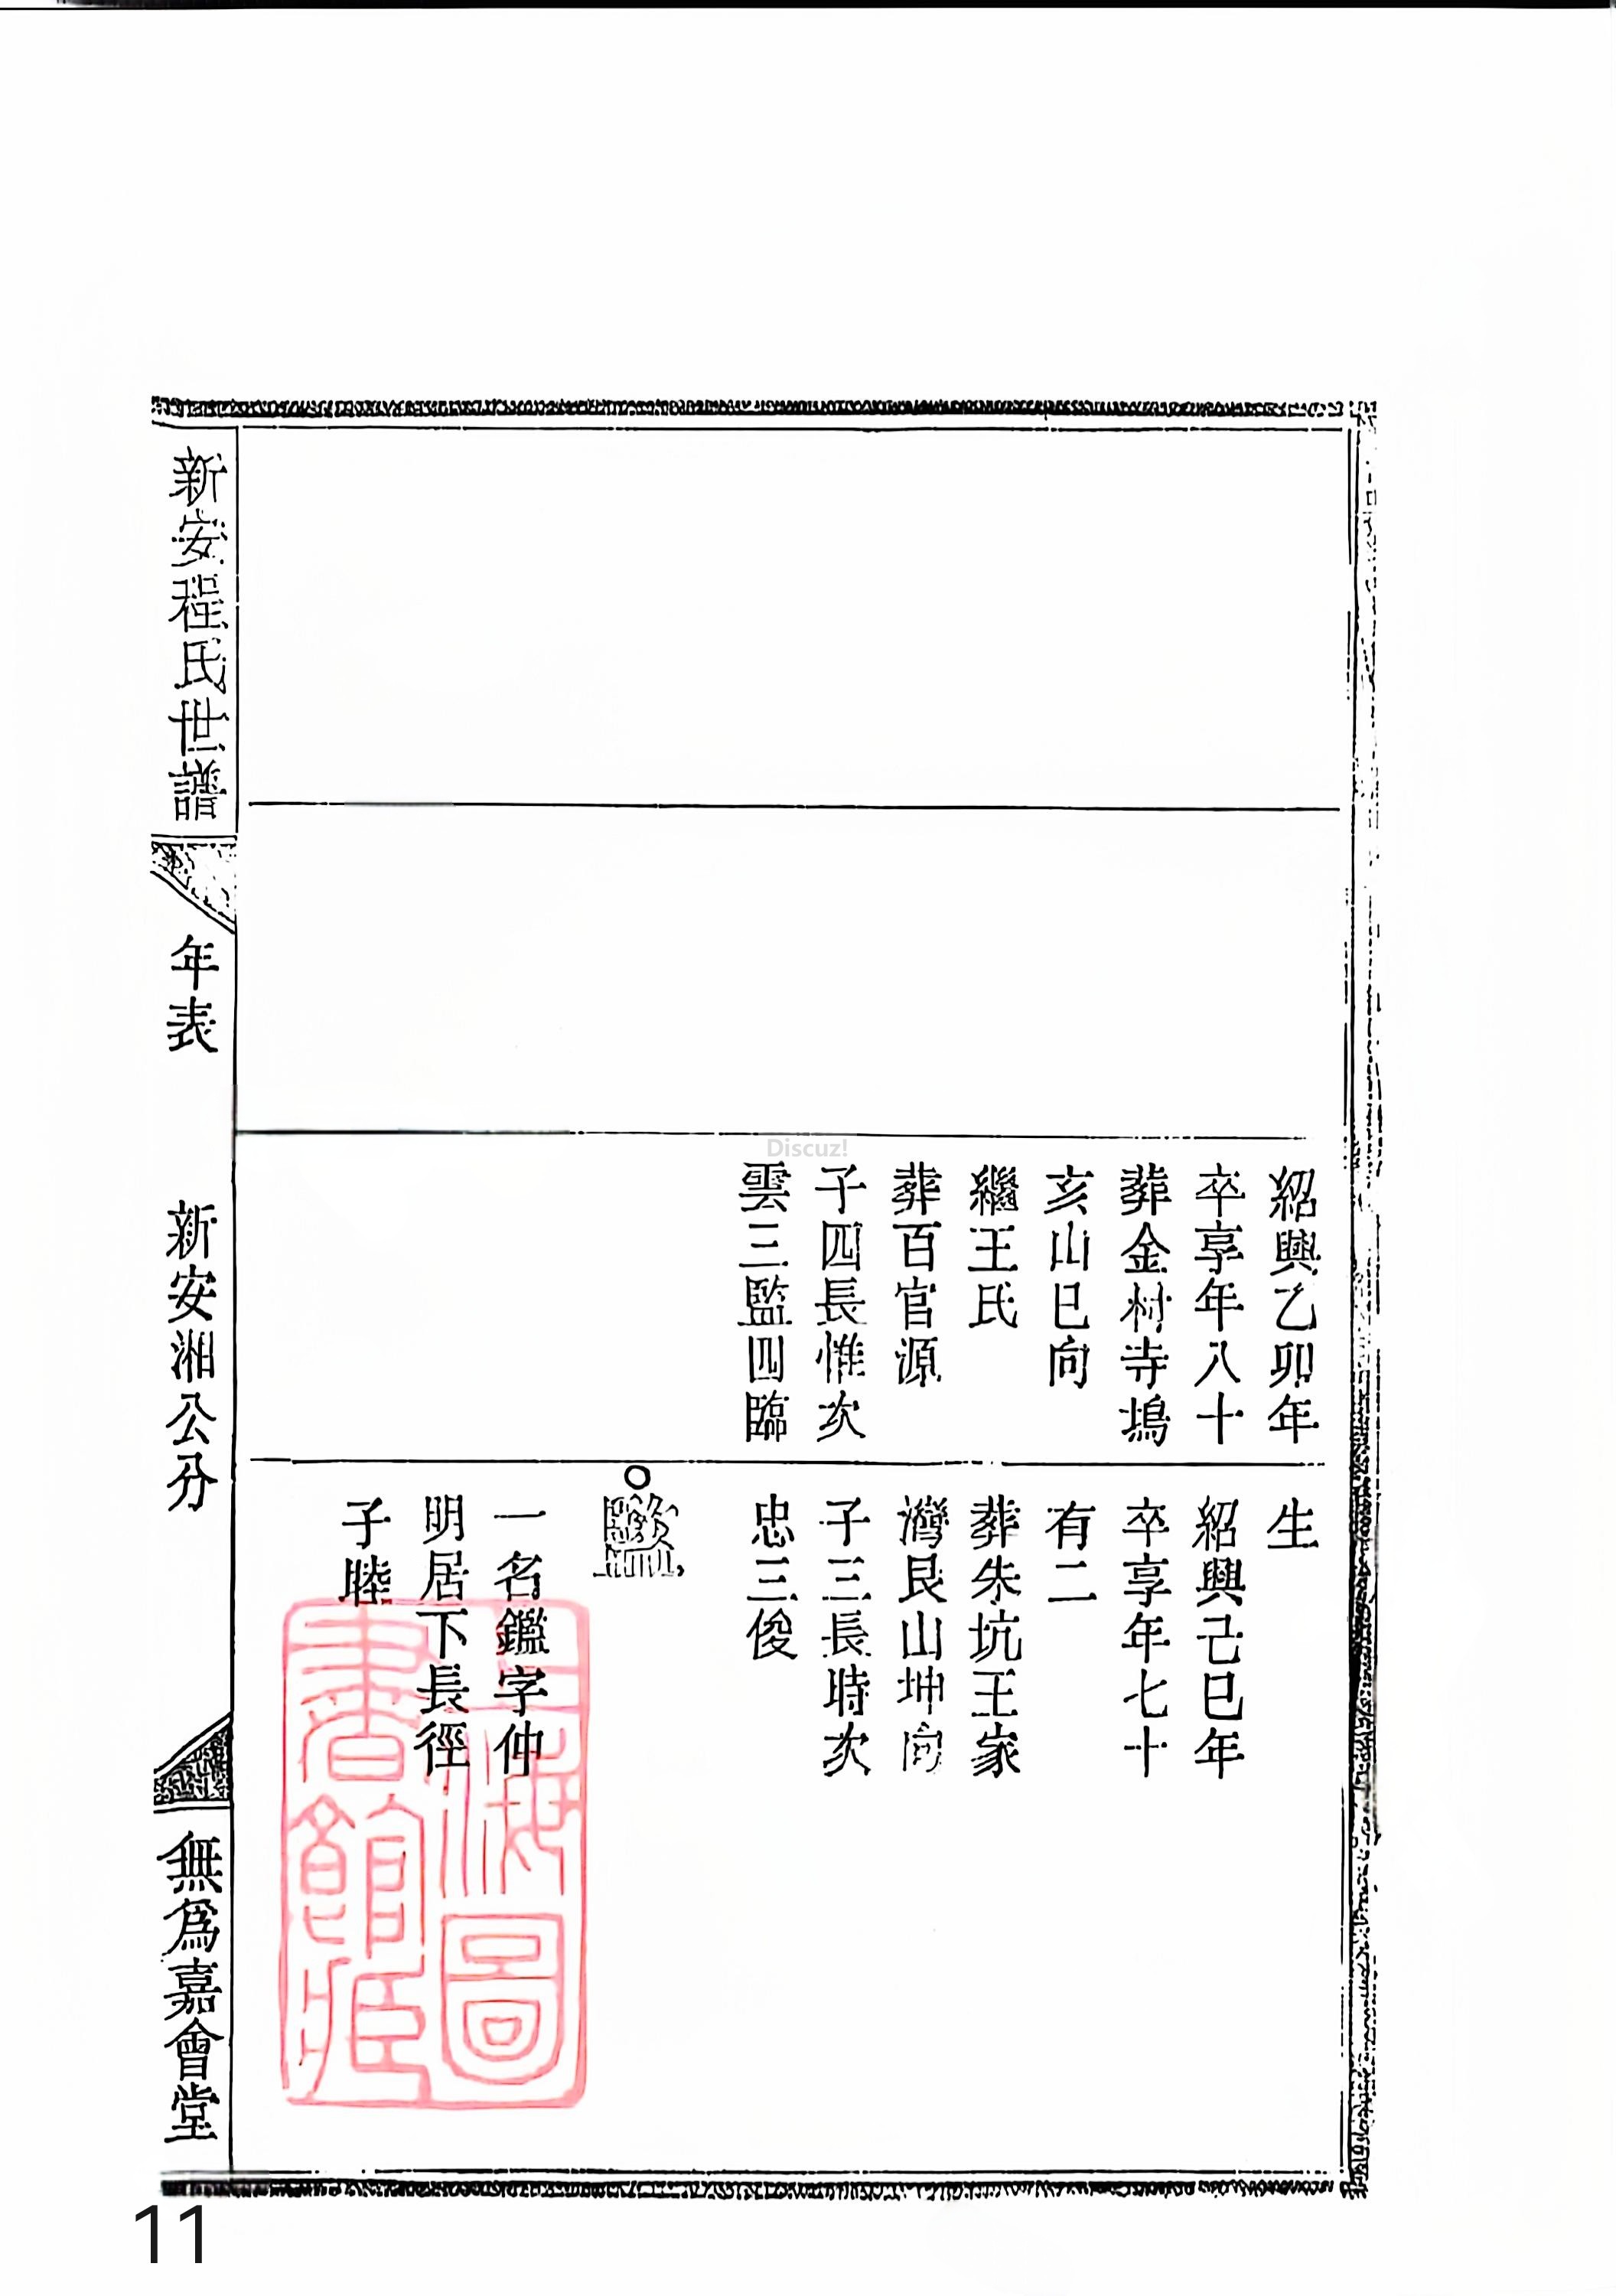 紹興乙卯年
卒享年八十
葬金村寺塢
亥山巳向
繼王氏
葬百官源
子四長惟次
雲三監四臨
生
紹興己巳年
卒享年七十
有二
葬朱坑王家
灣艮山坤向
子三長時次
忠三俊
一名鑑字仲
明居下長徑
子睦
新安程氏世譜
年表
新安湘公分
無爲嘉會堂
上海圖
書館藏
Discuz!
11